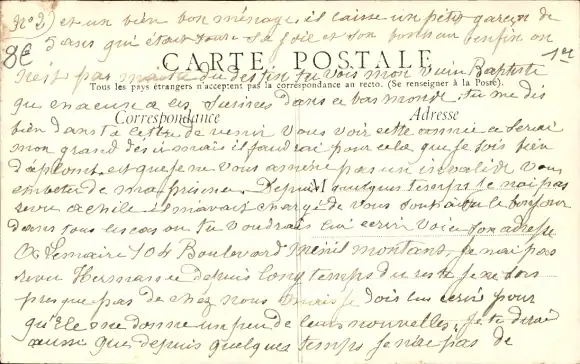 No 2) et un bien bon ménage, il laisse un petit garçon de
5 ans qui était toute sa joie et son bonheur enfin on
8€
1er
CARTE POSTALE
n'est pas maitre du destin tu vois mon vieux Baptiste
Tous les pays étrangers n'acceptent pas la correspondance au recto. (Se renseigner à la Poste).
que chacun a ses misères dans ce bas monde. tu me dis
Correspondance
Adresse
bien dans ta lettre de venir vous voir cette année ce serai
mon grand désir mais il faudrai pour cela que je sois bien
d'aplomb et que je ne vous amène pas un invalide vous
embeter de ma présence. Depuis quelques temps je n'ai pas
revu achile il m'avait chargé de vous souhaiter le bonjour
dans tous les cas ou tu voudrais lui ecrire voici son adresse
A Lemaire 104 Boulevard Ménilmontant. Je n'ai pas
revu Hermance depuis longtemps du reste je ne sors
presque pas de chez nous mais je dois lui ecrire pour
qu'Elle me donne un peu de leurs nouvelles, Je te dirai
aussi que depuis quelques temps je n'ai pas de